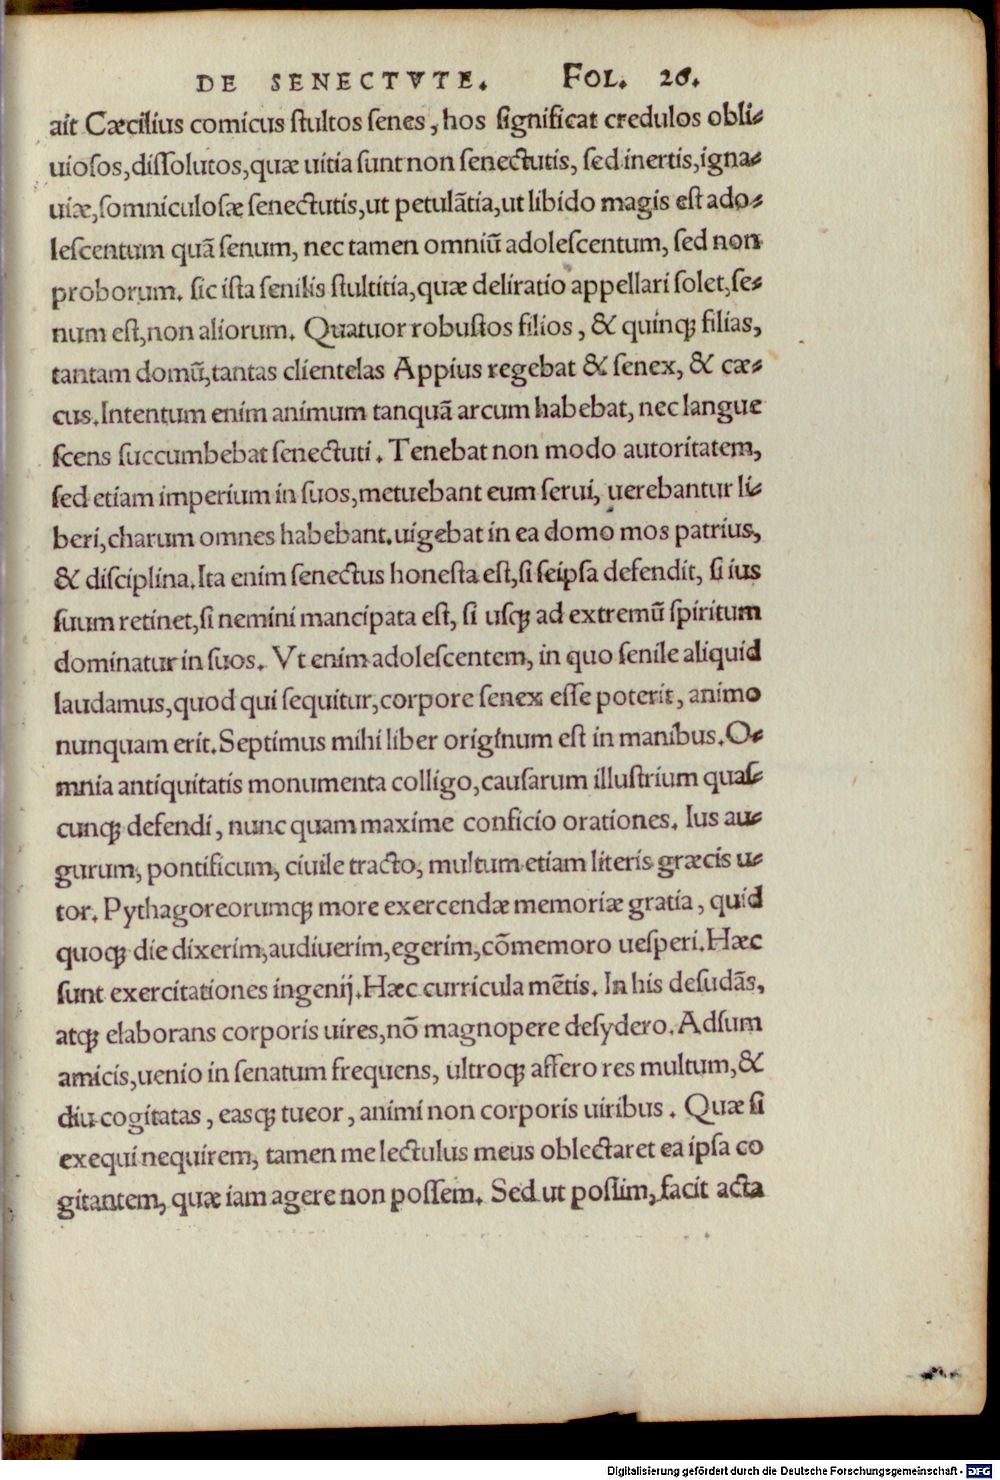 DE SENECTVTE. FOL. 26.
ait Cæcilius comicus ſtultos ſenes, hos ſignificat credulos obli-
uioſos, diſſolutos, quæ uitia ſunt non ſenectutis, ſed inertis, igna-
uiæ, ſomniculoſæ ſenectutis, ut petulātia, ut libido magis eſt ado-
leſcentum quā ſenum, nec tamen omniū adoleſcentum, ſed non
proborum. ſic iſta ſenilis ſtultitia, quæ deliratio appellari ſolet, ſe-
num eſt, non aliorum. Quatuor robuſtos filios, & quinqꝫ filias,
tantam domū, tantas clientelas Appius regebat & ſenex, & cæ-
cus. Intentum enim animum tanquā arcum habebat, nec langue
ſcens ſuccumbebat ſenectuti. Tenebat non modo autoritatem,
ſed etiam imperium in ſuos, metuebant eum ſerui, uerebantur li-
beri, charum omnes habebant. uigebat in ea domo mos patrius,
& diſciplina. Ita enim ſenectus honeſta eſt, ſi ſeipſa defendit, ſi ius
ſuum retinet, ſi nemini mancipata eſt, ſi uſqꝫ ad extremū ſpiritum
dominatur in ſuos. Vt enim adoleſcentem, in quo ſenile aliquid
laudamus, quod qui ſequitur, corpore ſenex eſſe poterit, animo
nunquam erit. Septimus mihi liber originum eſt in manibus. O-
mnia antiquitatis monumenta colligo, cauſarum illuſtrium quaſ-
cunqꝫ defendi, nunc quam maxime conficio orationes. Ius au-
gurum, pontificum, ciuile tracto, multum etiam literis græcis u-
tor. Pythagoreorumqꝫ more exercendæ memoriæ gratia, quid
quoqꝫ die dixerim, audiuerim, egerim, cōmemoro ueſperi. Hæc
ſunt exercitationes ingenij. Hæc curricula mētis. In his deſudās,
atqꝫ elaborans corporis uires, nō magnopere deſydero. Adſum
amicis, uenio in ſenatum frequens, ultroqꝫ affero res multum, &
diu cogitatas, easqꝫ tueor, animi non corporis uiribus. Quæ ſi
exequi nequirem, tamen me lectulus meus oblectaret ea ipſa co
gitantem, quæ iam agere non poſſem. Sed ut poſſim, facit acta
Digitalisierung gefördert durch die Deutsche Forschungsgemeinschaft - DFG